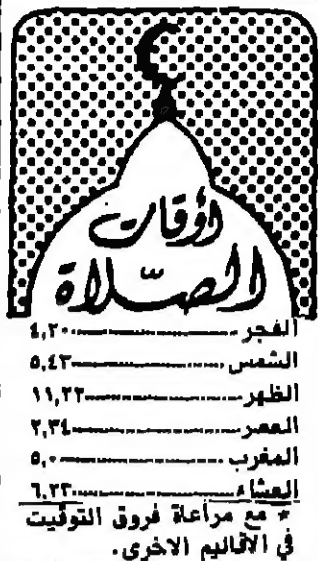 أوقات
الصّلاة
الفجر ٤,٢٠
الشمس ٥,٤٣
الظهر ١١,٢٢
العصر ٢,٣٤
المغرب ٥,٠
العشاء ٦,٢٣
* مع مراعاة فروق التوقيت
في الأقاليم الاخرى.